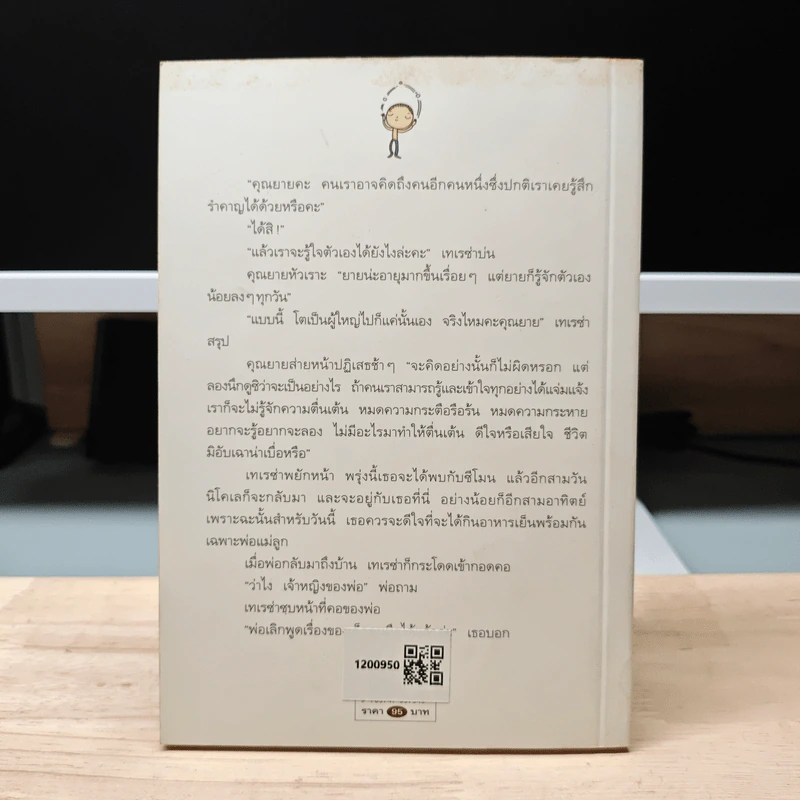 "คุณยายคะ คนเราอาจคิดถึงคนอีกคนหนึ่งซึ่งปกติเราเคยรู้สึก
รำคาญได้ด้วยหรือคะ"
"ได้สิ !"
"แล้วเราจะรู้ใจตัวเองได้ยังไงล่ะคะ" เทเรซ่าบ่น
คุณยายหัวเราะ "ยายน่ะอายุมากขึ้นเรื่อยๆ แต่ยายก็รู้จักตัวเอง
น้อยลงๆทุกวัน"
"แบบนี้ โตเป็นผู้ใหญ่ไปก็แค่นั้นเอง จริงไหมคะคุณยาย" เทเรซ่า
สรุป
คุณยายส่ายหน้าปฏิเสธช้าๆ "จะคิดอย่างนั้นก็ไม่ผิดหรอก แต่
ลองนึกดูซิว่าจะเป็นอย่างไร ถ้าคนเราสามารถรู้และเข้าใจทุกอย่างได้แจ่มแจ้ง
เราก็จะไม่รู้จักความตื่นเต้น หมดความกระตือรือร้น หมดความกระหาย
อยากจะรู้อยากจะลอง ไม่มีอะไรมาทำให้ตื่นเต้น ดีใจหรือเสียใจ ชีวิต
มิอับเฉาน่าเบื่อหรือ"
เทเรซ่าพยักหน้า พรุ่งนี้เธอจะได้พบกับซีโมน แล้วอีกสามวัน
นิโคเลก็จะกลับมา และจะอยู่กับเธอที่นี่ อย่างน้อยก็อีกสามอาทิตย์
เพราะฉะนั้นสำหรับวันนี้ เธอควรจะดีใจที่จะได้กินอาหารเย็นพร้อมกัน
เฉพาะพ่อแม่ลูก
เมื่อพ่อกลับมาถึงบ้าน เทเรซ่าก็กระโดดเข้ากอดคอ
"ว่าไง เจ้าหญิงของพ่อ" พ่อถาม
เทเรซ่าซบหน้าที่คอของพ่อ
"พ่อเลิกพูดเรื่องของ เธอบอก
1200950
ราคา 95 บาท